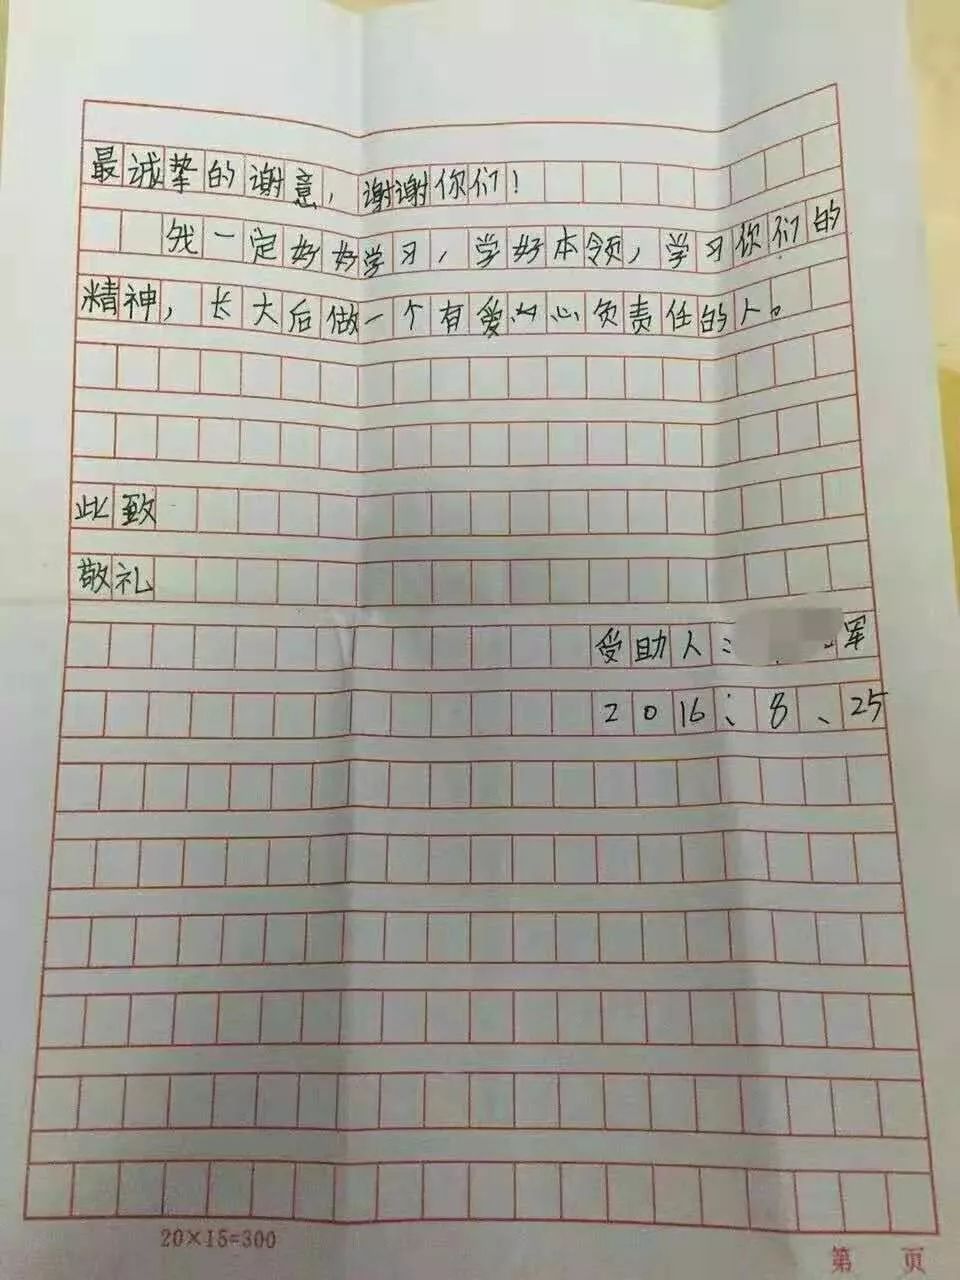 最诚挚的谢意，谢谢你们！
我一定好好学习，学好本领，学习你们的
精神，长大后做一个有爱心心负责任的人。
此致
敬礼
受助人：军
2016；8、25
20×15=300
第 页